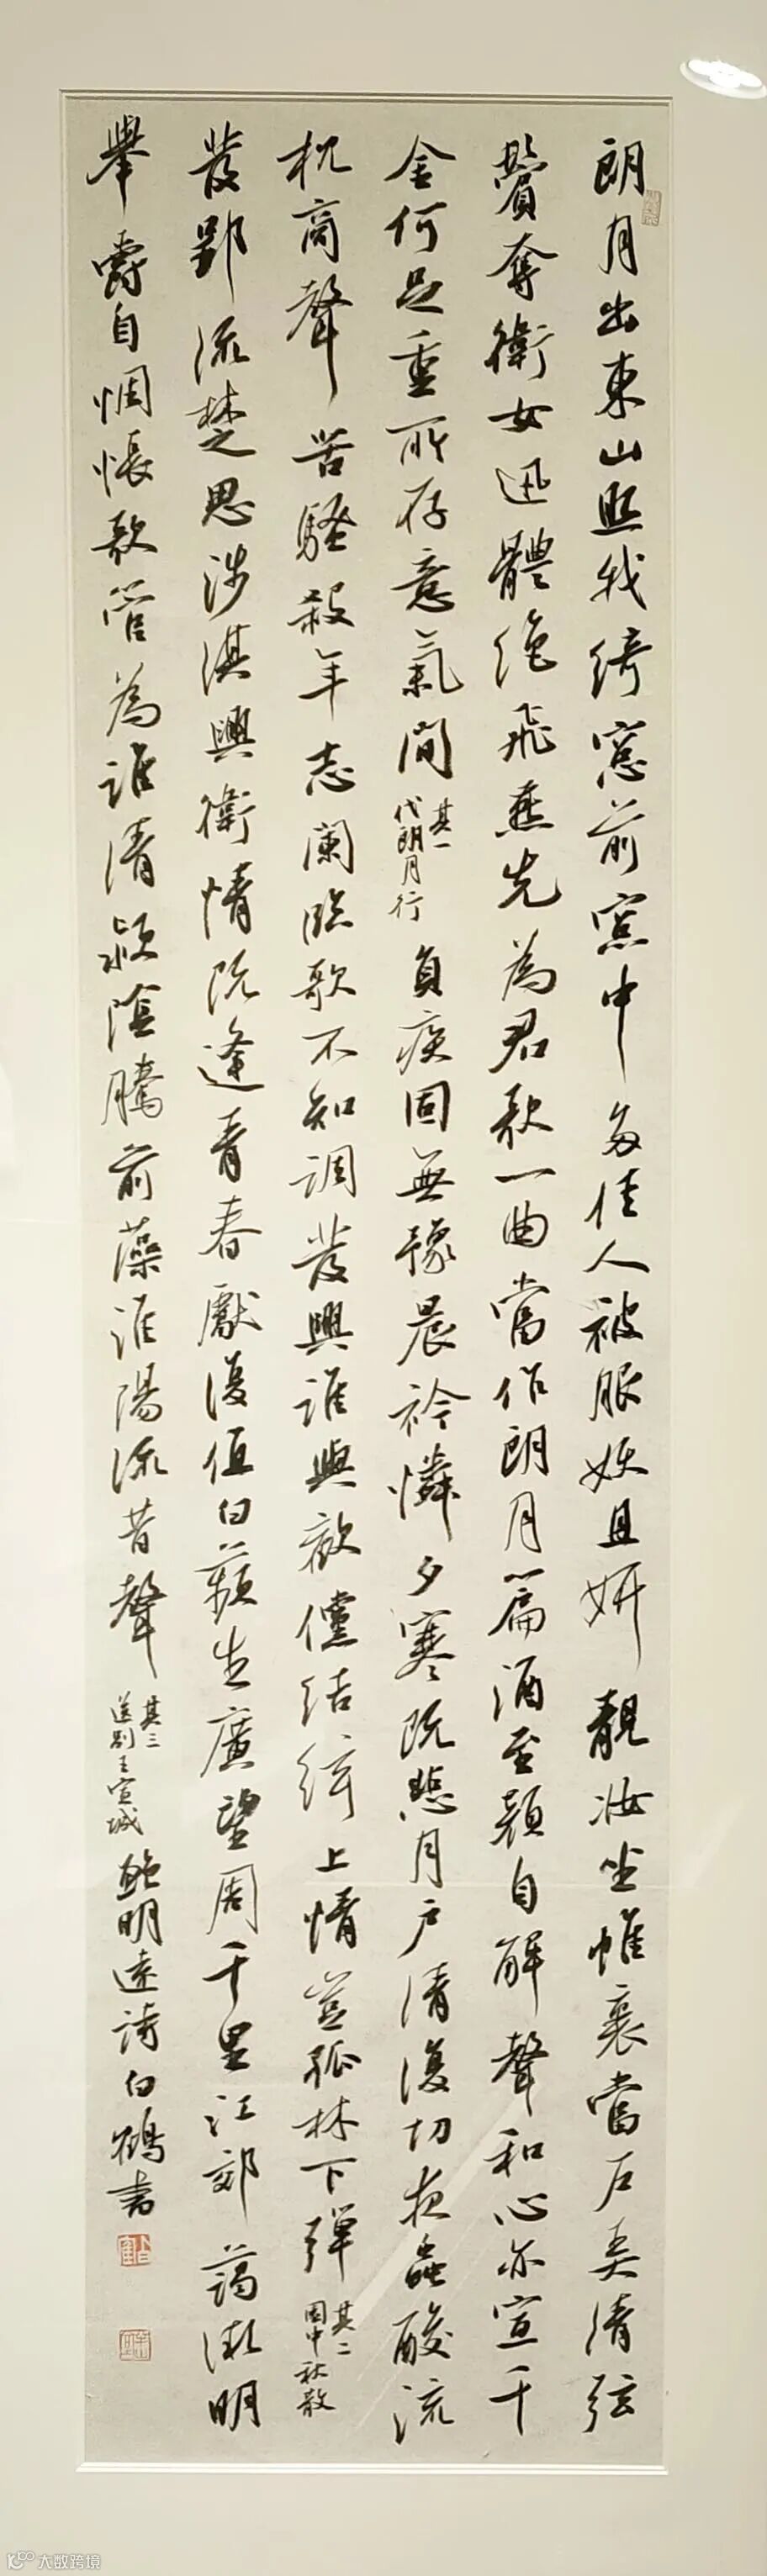 朗月出東山照我綺窓前窓中多佳人被服妖且妍靚妝坐帷裏當户弄清弦
鬢奪衛女迅體絶飛燕先為君歌一曲當作朗月篇酒至顔自解聲和心亦宣千
金何足重所存意氣間其一代朗月行負疾固無豫晨衿悵夕寒既悲月户清復切夜蟲酸流
枕商聲苦騷殺年志闌臨歌不知調發興誰與歡儻結弦上情豈孤林下彈其二園中秋散
發郢流楚思涉淇興衛情既逢青春獻復值白蘋生廣望周千里江郊藹微明
舉爵自惆悵歌管為誰清潁陰騰前藻淮陽流昔聲其三送别王宣城鮑明遠詩白鶴書
大数跨境